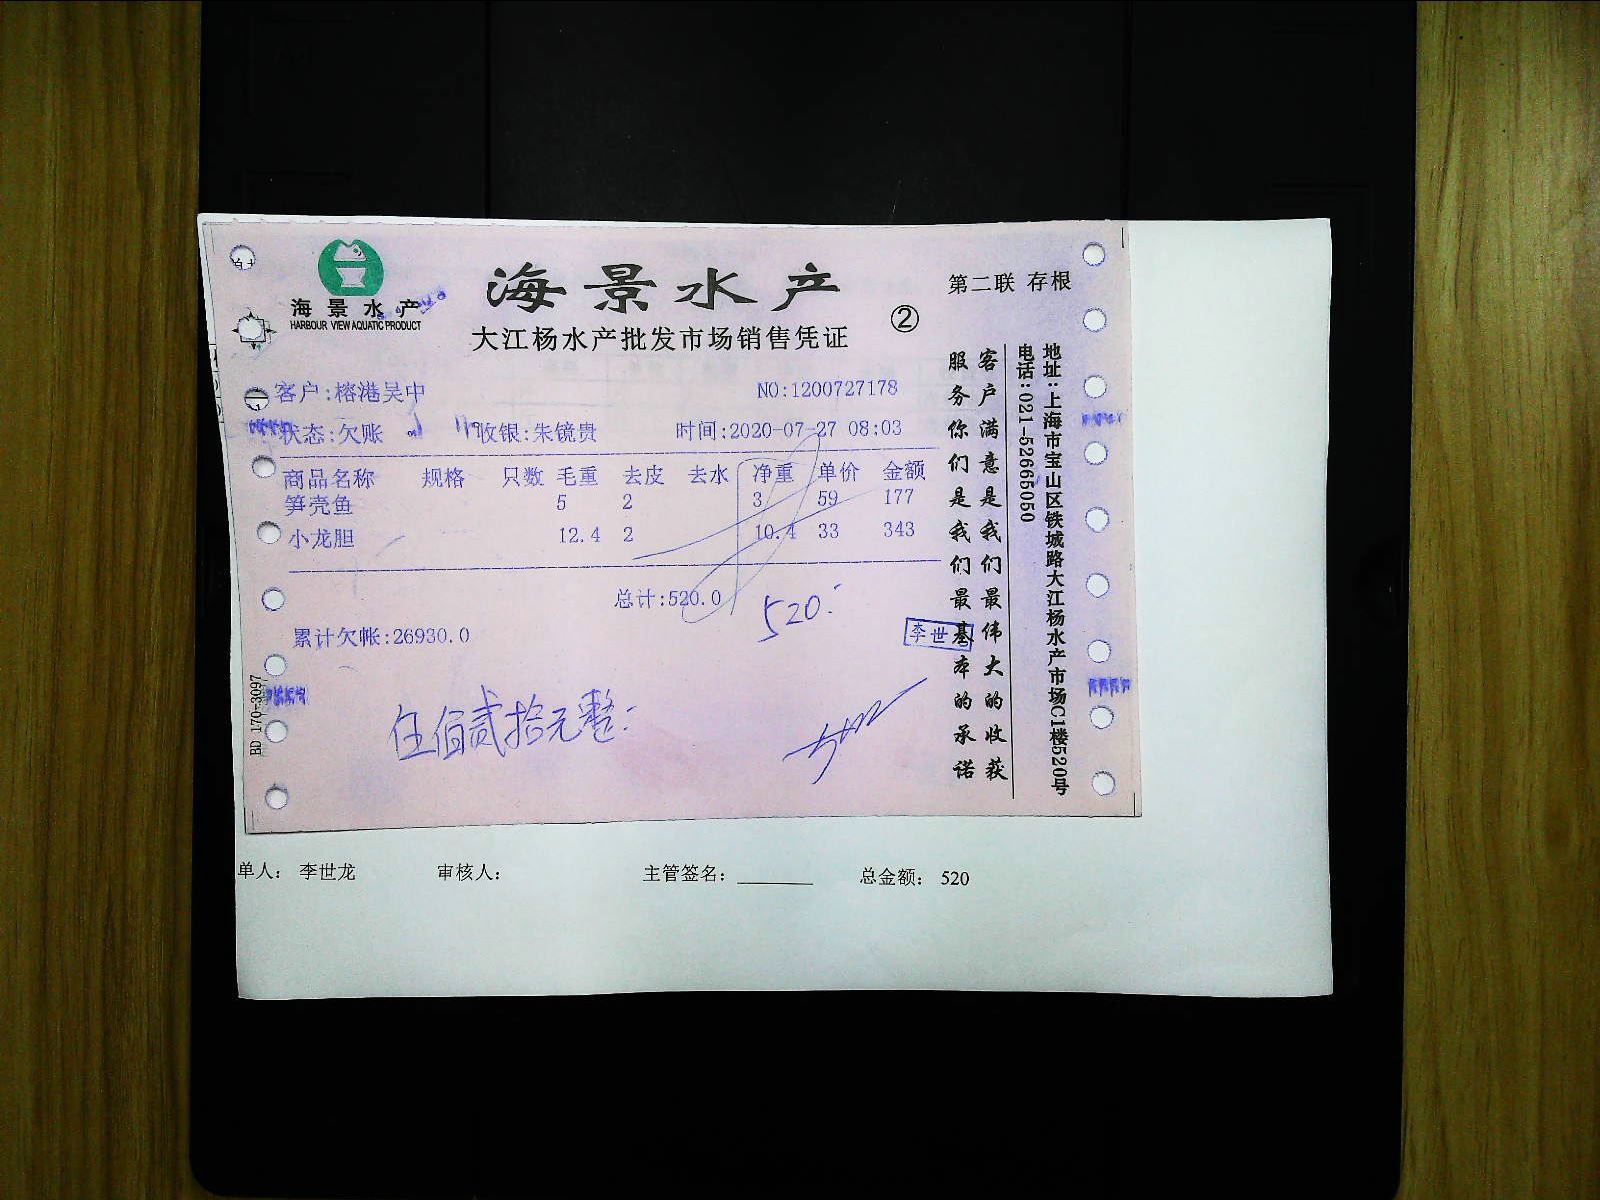 海景水产
HARBOUR VIEW AQUATIC PRODUCT
海景水产
大江杨水产批发市场销售凭证
②
第二联 存根
客户:榕港吴中
NO:1200727178
状态:欠账
收银:朱镜贵
时间:2020-07-27 08:03
商品名称 规格 只数 毛重 去皮 去水 净重 单价 金额
笋壳鱼 5 2 3 59 177
小龙胆 12.4 2 10.4 33 343
总计:520.0
520
累计欠帐:26930.0
李世
伍佰贰拾元整
客户满意是我们最伟大的收获
服务你们是我们最基本的承诺
地址:上海市宝山区铁城路大江杨水产市场C1楼520号
电话:021-52665050
BD 170-3097
单人: 李世龙 审核人: 主管签名: 总金额: 520